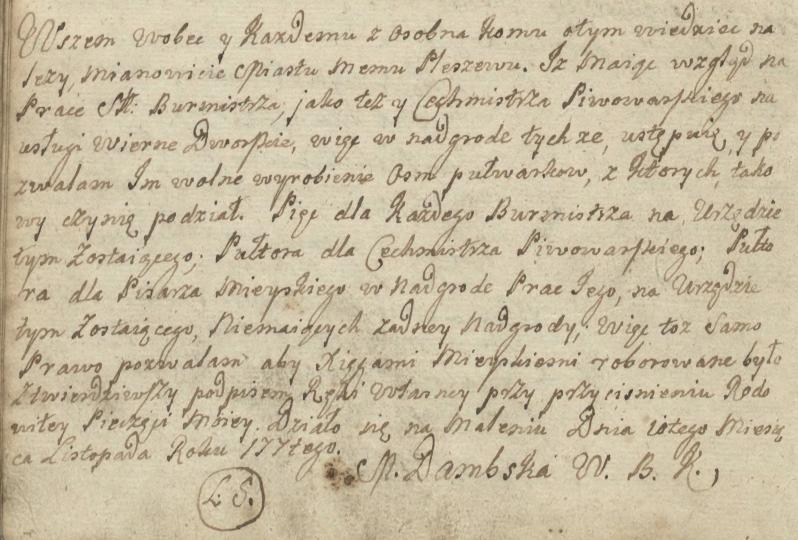 Wszem wobec y Każdemu z osobna komu otym wiedziec na
lezy, mianowicie Miastu Memu Pleszewu. Iż Maiąc wzgląd na
Prace Sł: Burmistrza, jako też y Cechmistrza Piwowarskiego na
usługi wierne Dworskie, więc w nadgrode tychże, ustępuię, y po
zwalam Im wolne wyrobienie Osm pułwarkow, z Ktorych tako
wy czynię podział. Pięc dla Każdego Burmistrza na Urzędzie
tym Zostaiącego; Pułtora dla Cechmistrza Piwowarskiego; Pułto
ra dla Pisarza Mieyskiego w Nadgrode Prac Jego, na Urzędzie
tym Zostaiącego, Niemaiących zadney Nadgrody; Więc toż Samo
Prawo pozwalam aby Xięgami Mieyskiemi roborowane było
Ztwierdziwszy podpisem Ręki Własney przy przycisnieniu Rodo
witey Pieczęci Moiey. Działo się na Maleniu Dnia 10tego Miesią
ca Listopada Roku 1771tego.
M. Dambska W. B. K.,
L. S.